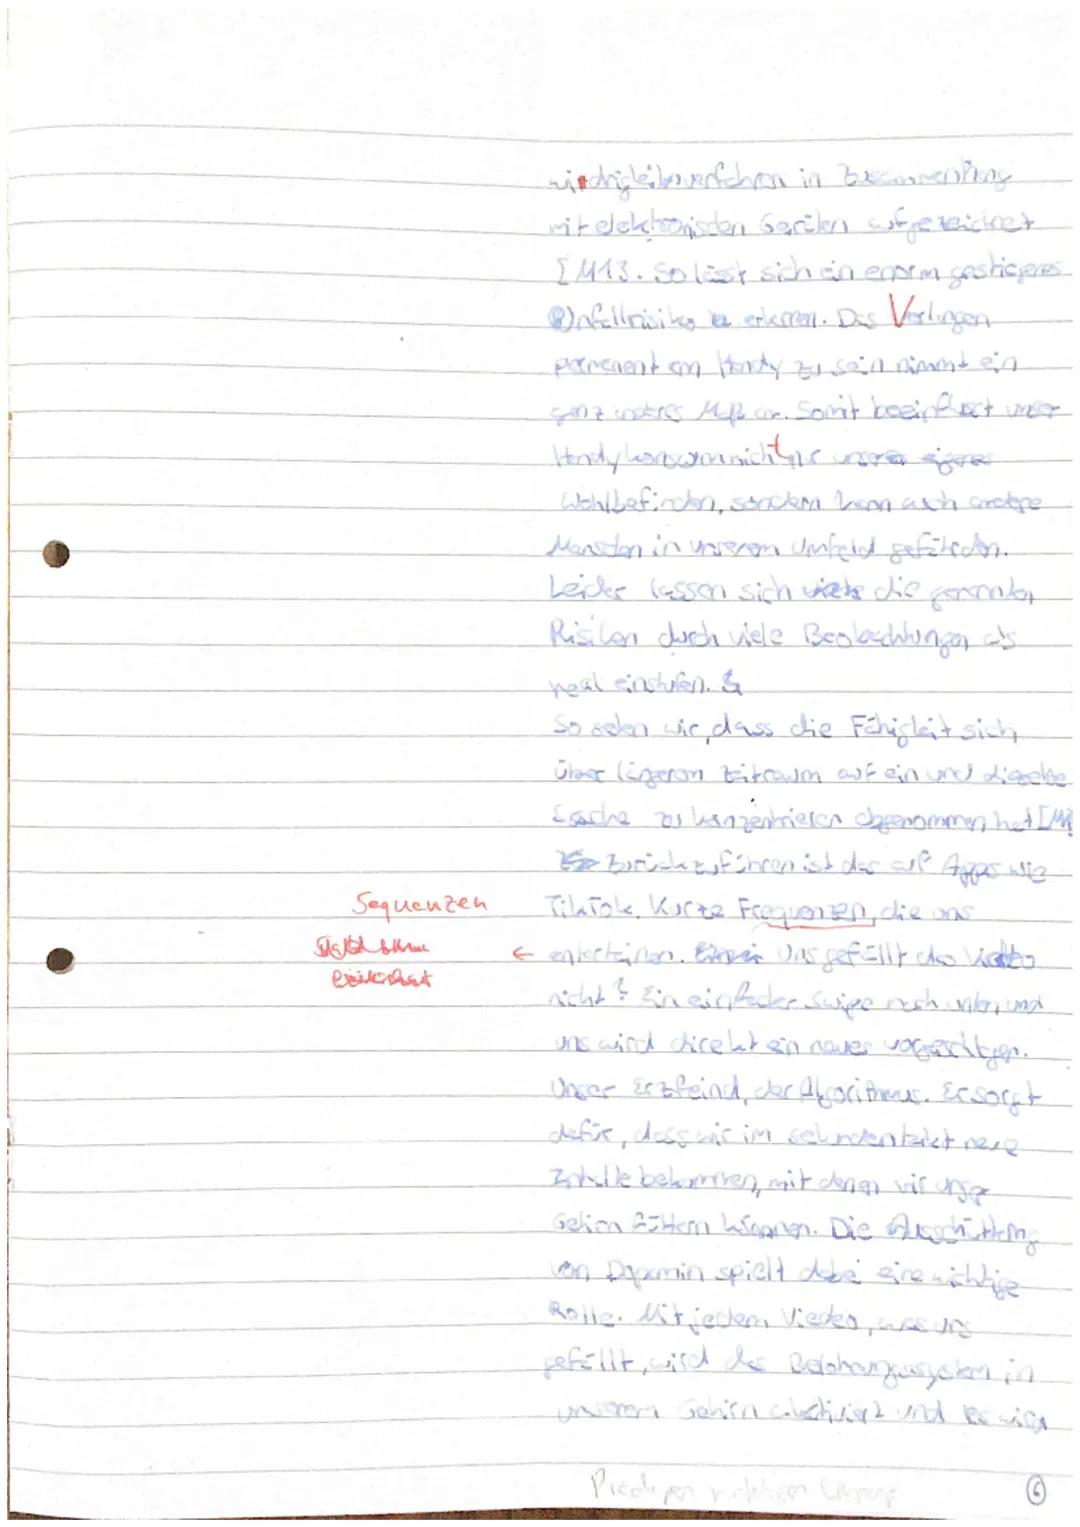 in
mit elektronischen Geräten aufgezeichnet
[M13. So lässt sich ein enorm gestiegenes
Unfallrisiko erkennen. Das Verlangen
permanent am Handy zu sein nimmt ein
ganz anderes Maß an. Somit beeinflusst unser
Handykonsum nicht nur
Wohlbefinden, sondern kann auch andere
Menschen in unserem Umfeld gefährden.
Leider lassen sich die genannten
Risiken durch viele Beobachtungen als
real einstufen.
So sehen wir, dass die Fähigkeit sich
über längerem Zeitraum auf ein und dieselbe
Sache zu konzentrieren abgenommen hat
Zurückzuführen ist das auf Apps wie
Sequenzen
TikTok. Kurze Frequenzen, die uns
← entertainen. Uns gefällt das
nicht? Ein einfacher Swipe nach unten und
uns wird direkt ein neues vorgeschlagen.
Unser Erzfeind, der Algorithmus. Er sorgt
dafür, dass wir im sekundentakt neue
Inhalte bekommen, mit denen wir unser
Gehirn füttern können. Die Ausschüttung
von Dopamin spielt dabei eine wichtige
Rolle. Mit jedem Viedeo, was uns
gefällt, wird das Belohnungssystem in
unserem Gehirn aktiviert und es wird
6